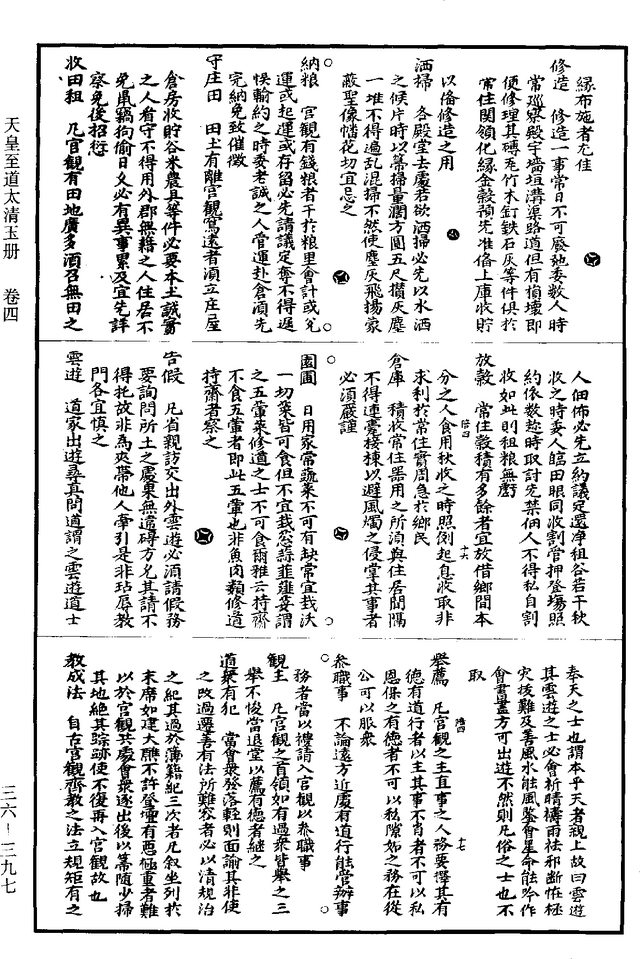 天皇至道太清玉册 卷四
三六—三九七
緣布施者尤佳
修造 修造一事常日不可廢弛委數人時
常巡察殿宇墻垣溝渠路道但有損壞即
便修理其磚瓦竹木釘鐵石灰等件俱於
常住關領化緣金穀預先准俻上庫收貯
以俻修造之用
洒掃 各殿堂去處若欲洒掃必先以水洒
之候片時以箒掃量濶方圓五尺攢灰塵
一堆不得過乱混掃不然使塵灰飛揚家
蔽聖像幡花切宜忌之
納粮 宮觀有錢粮者于於粮里會計或兌
運或起運或存留必先請議定奪不得返
悞輸約之時委老誠之人管運赴倉須先
完納免致催徵
守庄田 田土有離宮觀窵遠者須立庄屋
倉房收貯谷米農具等件必要本土誠實
之人看守不得用外郡無籍之人住居不
免鼠竊狗偷日久必有異事累及宜先詳
察免後招愆
收田租 凡宮觀有田地廣多須召無田之
人佃佈必先立約議定還淨租谷若干秋
收之時委人臨田眼同收割管押登塲照
約依數趁時取討先禁佃人不得私自割
收如此則租粮無虧
放穀 常住穀積有多餘者宜放借鄉間本
分之人食用秋收之時照例起息收取非
求利於常住實周急於鄉民
倉庫 積收常住器用之所須與住居間隔
不得連甍接棟以避風燭之侵掌其事者
必須嚴謹
園圃 日用家常蔬菜不可有缺常宜栽沃
一切菜皆可食但不宜栽葱蒜韮薤荽謂
之五葷菜修道之士不可食爾雅云持齋
不食五葷者即此五葷也非魚肉類修道
持齋者察之
告假 凡省親訪交出外雲遊必須請假務
要詢問所土之處果無違碍方允其請不
得托故非為夾帶他人牽引是非玷辱教
門各宜慎之
雲遊 道家出遊尋真問道謂之雲遊道士
奉天之士也謂本乎天者親上故曰雲遊
其雲遊之士必會祈晴禱雨祛邪斷恠拯
灾拔難及善風水能風鑒會星命能吟作
會書畫方可出遊不然則凡俗之士也不
取
舉薦 凡宮觀之主直事之人務要擇其有
德有道行者以主其事不肖者不可以私
恩保之有德者不可以私隙妬之務在從
公可以服衆
叅職事 不論遠方近處有道行能管辦事
務者當以禮請入宮觀以叅職事
觀主 凡宮觀之首領如有過衆皆舉之三
舉不悛當退堂以薦有德者継之
道衆有犯 當會衆發落輕則面諭其非使
之改過遷善有法所難容者必以清規治
之紀其過於薄籍紀三次者凡叙坐列於
末席如建大醮不許登壇有悪極重者難
以於宮觀共處會衆逐出後以箒隨少掃
其地絶其踪跡使不復再入宮觀故也
教成法 自古宮觀齊教之法立規矩有之